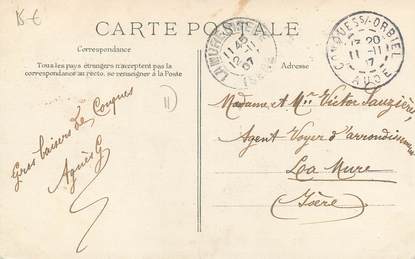 15-€
CARTE POSTALE
Correspondance
Tous les pays étrangers n'acceptent pas la
correspondance au recto, se renseigner à la Poste
Adresse
LA MURE
11 45
12-11
07
ISÈRE
CONQUES S/ ORBIEL
20
11-11
07
AUDE
Gros baisers de Conques
Agnès G
Madame et Mr Victor Sauzière
Agent Voyer d'arrondissement
La Mure
(Isère)